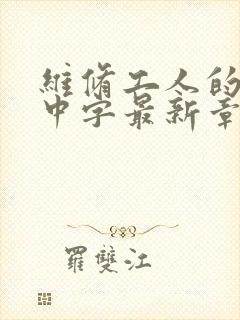 維修工人的
中字最新章
羅雙江